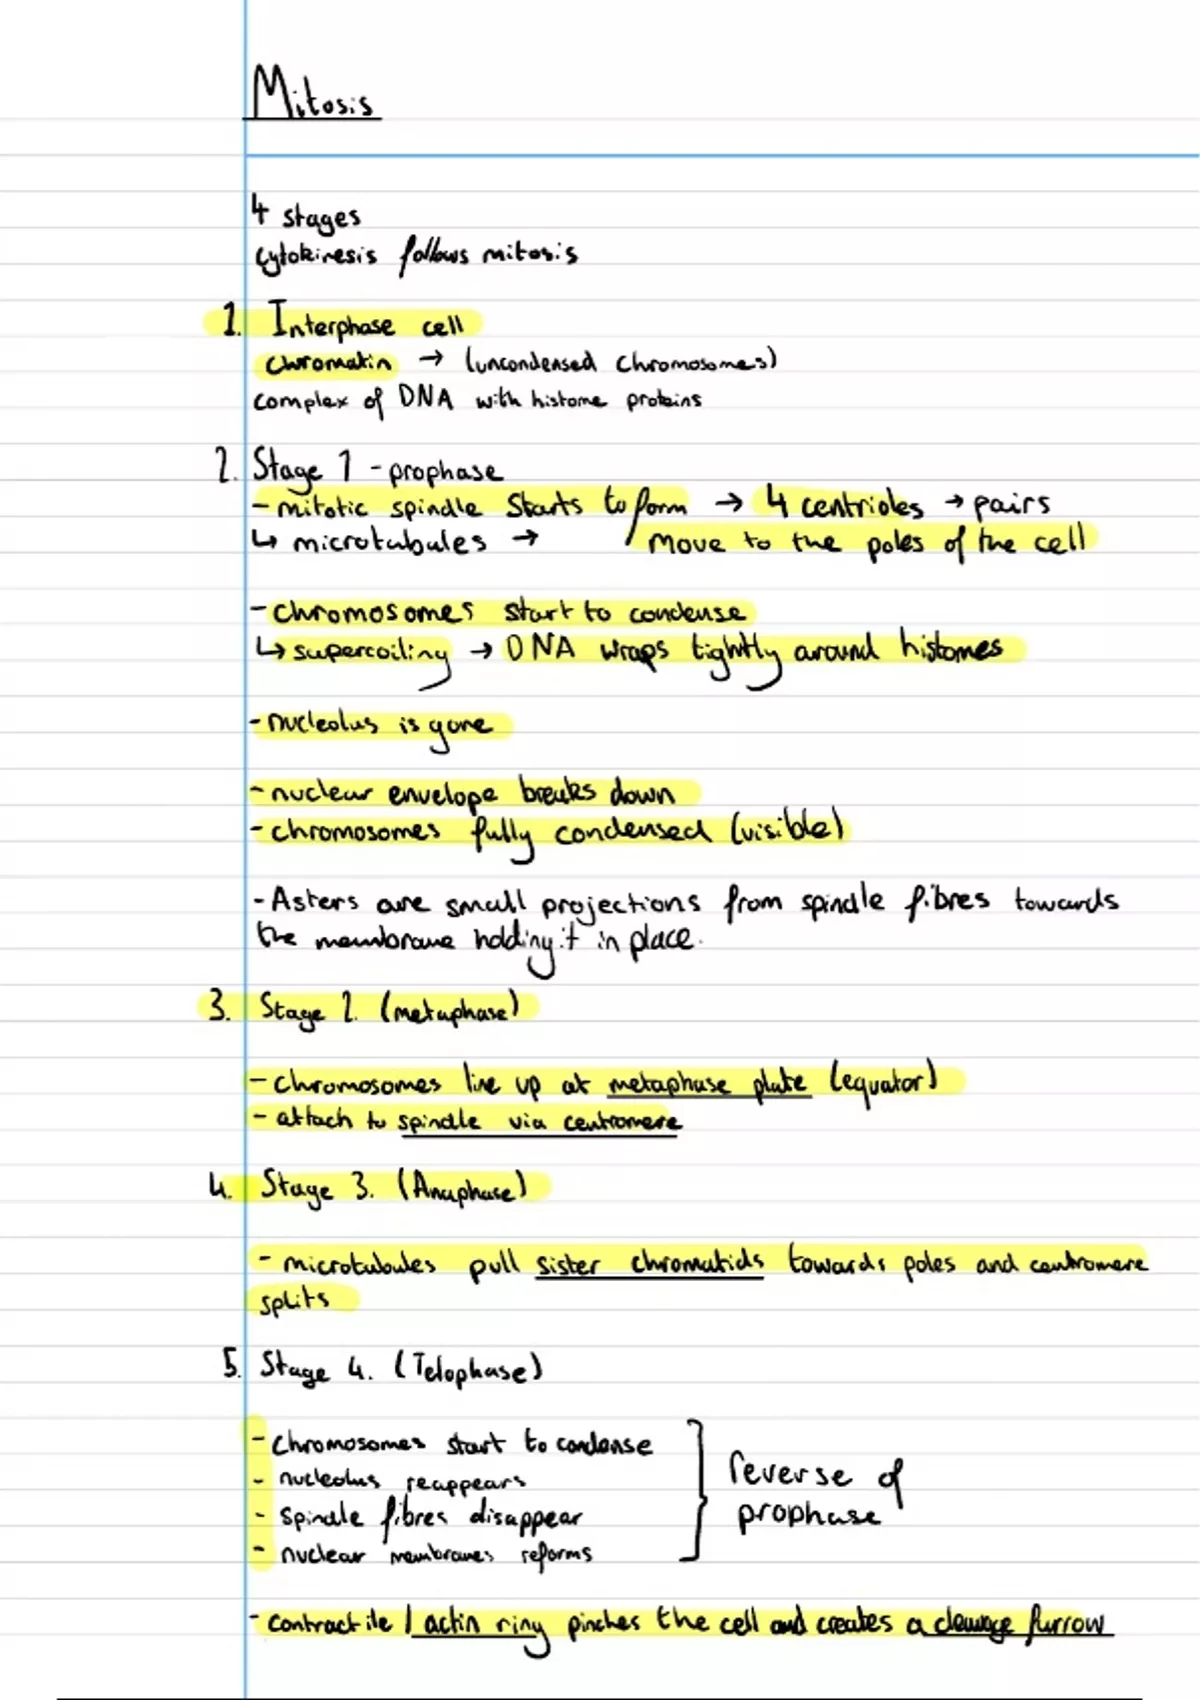 Mitosis
4 stages
cytokinesis follows mitosis
1. Interphase cell
chromatin → (uncondensed chromosomes)
complex of DNA with histome proteins
2. Stage 1 - prophase
- mitotic spindle starts to form → 4 centrioles → pairs
↳ microtubules → move to the poles of the cell
- chromosomes start to condense
↳ supercoiling → DNA wraps tightly around histomes
- nucleolus is gone
- nuclear envelope breaks down
- chromosomes fully condensed (visible)
- Asters are small projections from spindle fibres towards
the membrane holding it in place.
3. Stage 2. (metaphase)
- chromosomes line up at metaphase plate (equator)
- attach to spindle via centromere
4. Stage 3. (Anaphase)
- microtubules pull sister chromatids towards poles and centromere
splits
5. Stage 4. (Telophase)
- chromosomes start to condense
- nucleolus reappears
- spindle fibres disappear
- nuclear membranes reforms
reverse of
prophase
- contractile / actin ring pinches the cell and creates a cleavage furrow